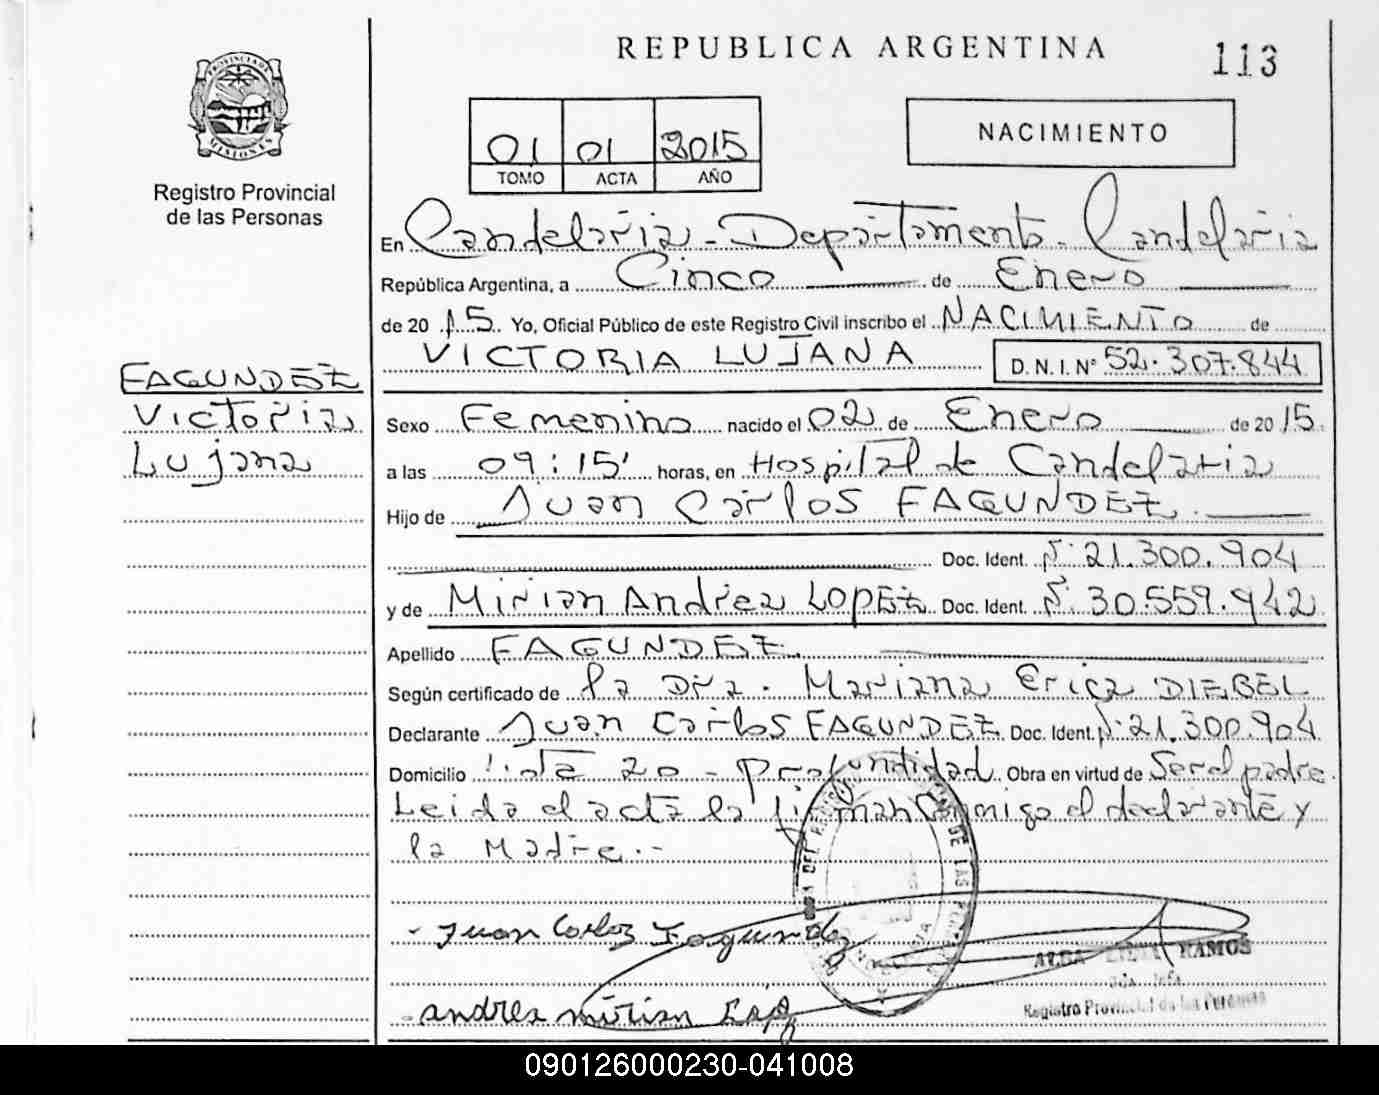 REPUBLICA ARGENTINA
113
PROVINCIA DE
MISIONES
Registro Provincial
de las Personas
01 01 2015
TOMO ACTA AÑO
NACIMIENTO
En Candelaria - Departamento - Candelaria
República Argentina, a Cinco de Enero
de 20 15. Yo, Oficial Público de este Registro Civil inscribo el NACIMIENTO de
VICTORIA LUJANA D.N.I. Nº 52.307.844
FAGUNDEZ
Victoria
Lujana
Sexo Femenino nacido el 02 de Enero de 20 15.
a las 09:15' horas, en Hospital de Candelaria
Hijo de Juan Carlos FAGUNDEZ.
Doc. Ident. Nº 21.300.904
y de Mirian Andrea LOPEZ Doc. Ident. Nº 30.559.942
Apellido FAGUNDEZ.
Según certificado de la Dra. Mariana Erica DIEBEL
Declarante Juan Carlos FAGUNDEZ Doc. Ident. Nº 21.300.904
Domicilio 20 - Profundidad Obra en virtud de Ser el padre.
Leida el acta la firman Conmigo el declarante y
la Madre.-
Juan Carloz Fagundez
RAMOS
Registro Provincial de las Personas
andrea mirian Lopz
090126000230-041008